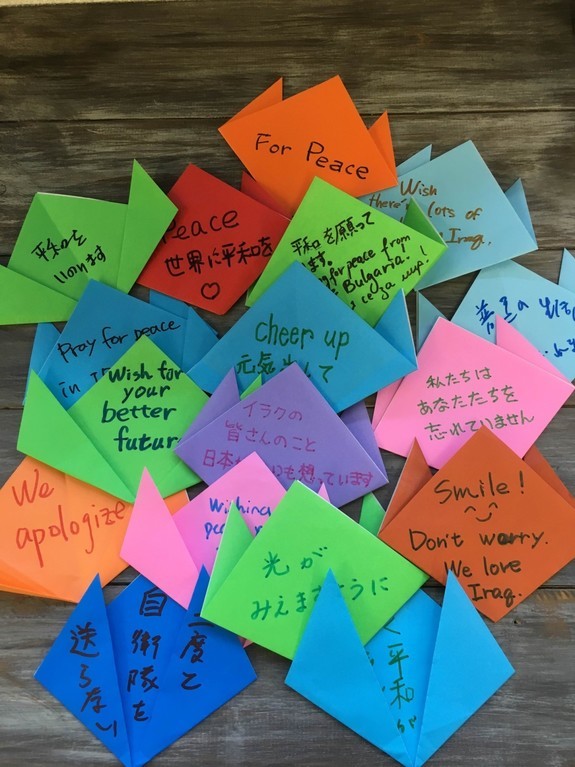 For Peace
Wish
lots of
Iraq.
平和を
いのります
Peace
世界に平和を
♡
平和を願って
ます。
for peace from
Bulgaria!
Pray for peace
in
cheer up
元気出して
Wish for
your
better
私たちは
あなたたちを
忘れていません
イラクの
皆さんのこと
想っています
We
apologize
Smile!
Don't worry.
We love
Iraq.
光が
みえますように
二度と
自衛隊を
送らない
平和が